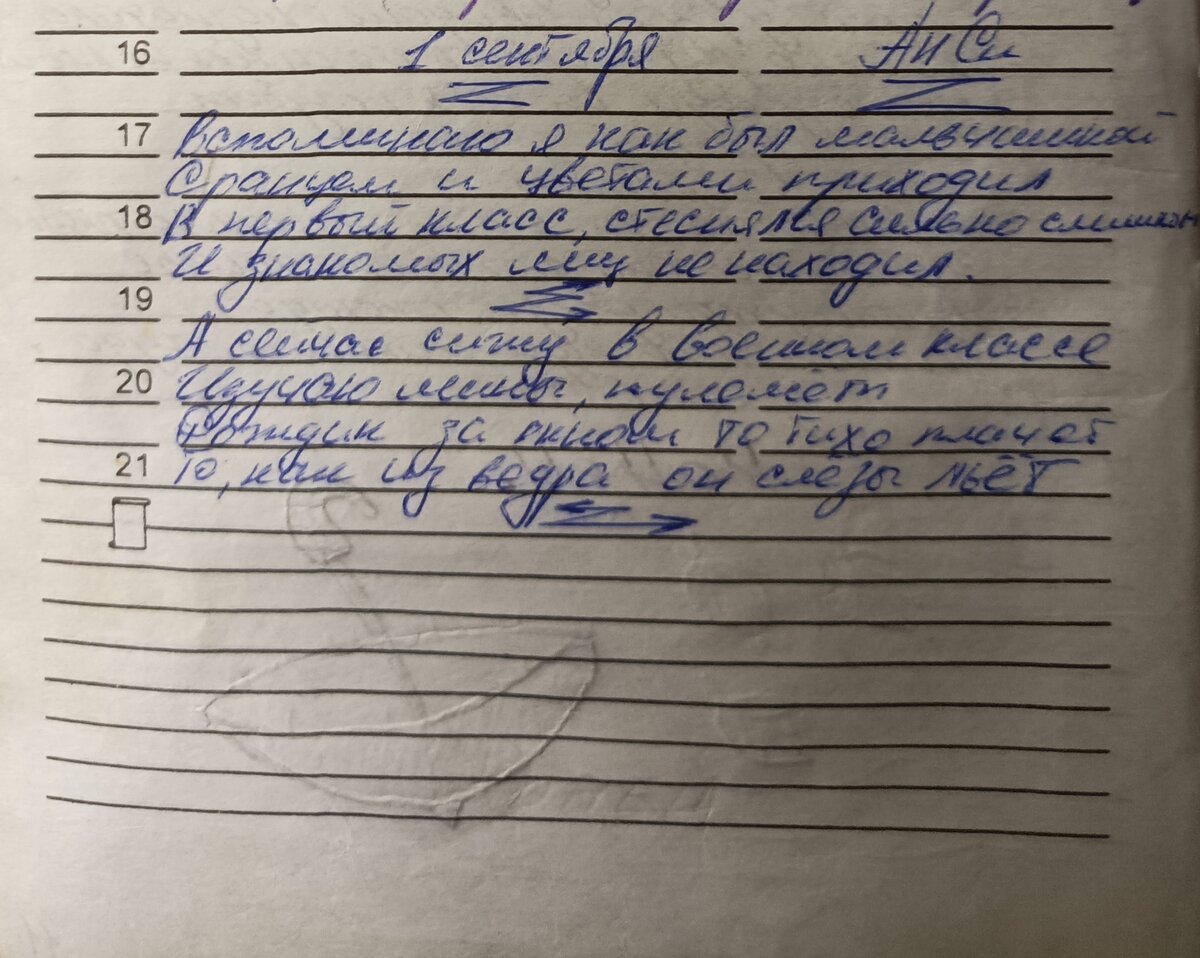 16 1 сентября АнСи
17 Вспоминаю я как был мальчишкой
С ранцем и цветами приходил
18 В первый класс, стеснялся сильно слишком
И знакомых лиц не находил.
19
А сейчас сижу в военном классе
20 Изучаю мины, пулемёт
Дождик за окном то тихо плачет
21 То, как из ведра он слёзы льёт